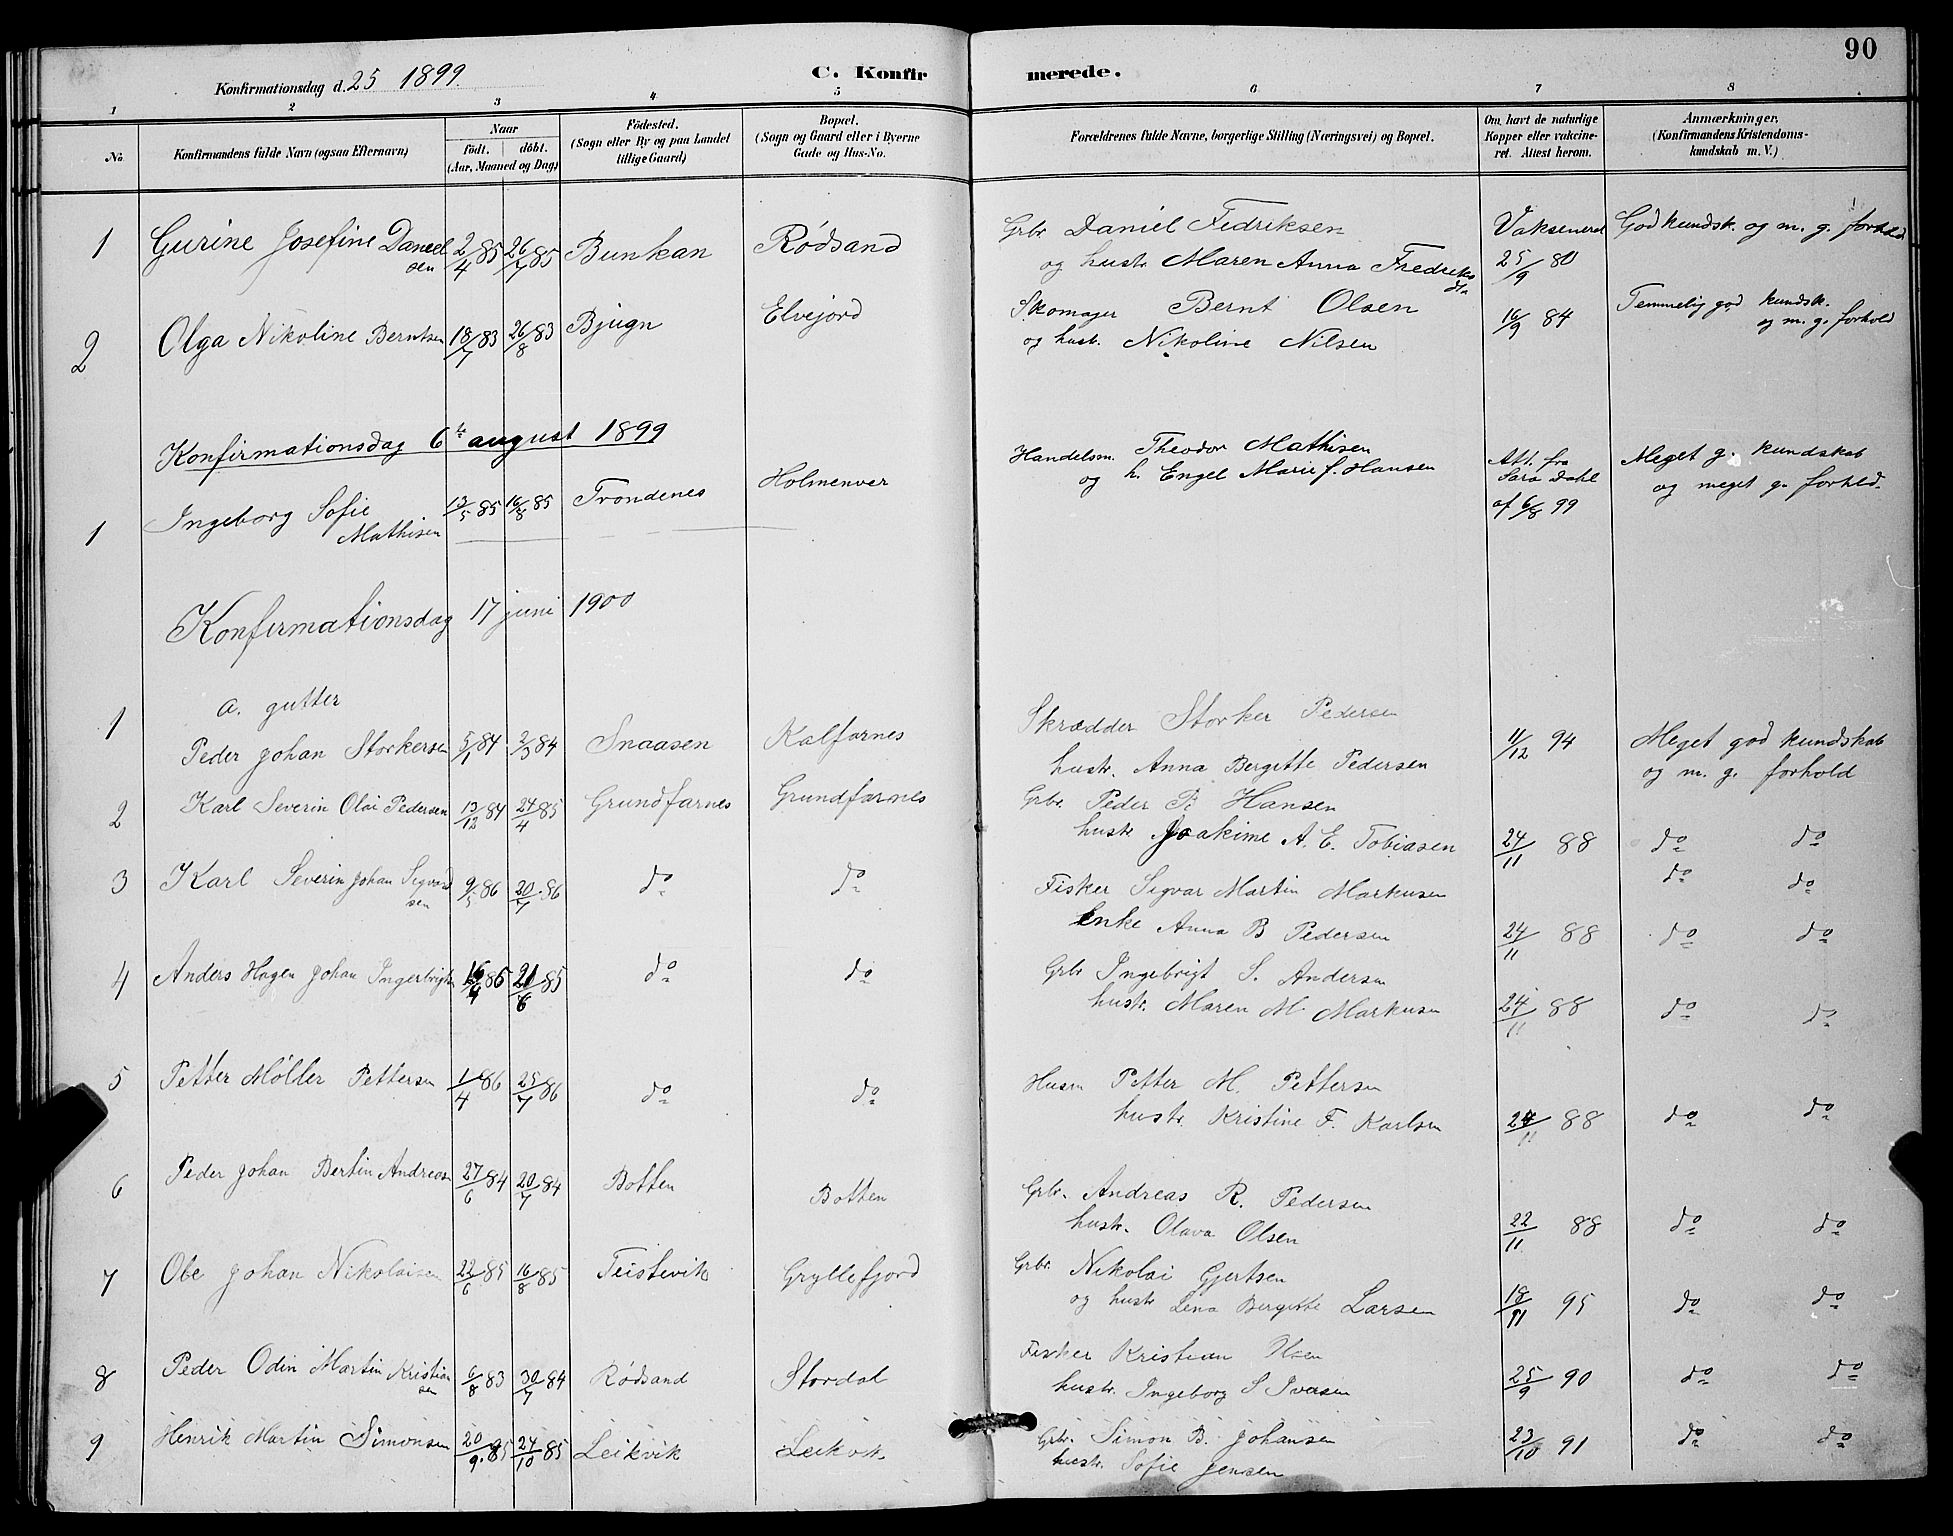 90
Konfirmationsdag d. 25 1899.
C. Konfirmerede.
1 2 3 4 5 6 7 8
No.
Konfirmandens fulde Navn (ogsaa Efternavn)
Naar
født. døbt.
(Aar, Maaned og Dag)
Fødested.
(Sogn eller By og paa Landet
tillige Gaard)
Bopæl.
(Sogn og Gaard eller i Byerne
Gade og Hus-No.
Forældrenes fulde Navne, borgerlige Stilling (Næringsvei) og Bopæl.
Om havt de naturlige
Kopper eller vakcine-
ret. Attest herom.
Anmærkninger.
(Konfirmandens Kristendoms-
kundskab m. V.)
1 Gurine Josefine Daniel 2/4 85 26/7 85 Bunkan Rødsand Grbr Daniel Fedriksen Vaksineret God kundsk. og m. g. forhold
sen og hustr. Maren Anna Fredriks 25/9 80
2 Olga Nikoline Berntsen 18/7 83 26/8 83 Bjugn Elvejord Skomager Bernt Olsen 16/9 84 Temmelig god kundsk.
og hustr. Nikoline Nilsen og m. g. forhold
Konfirmationsdag 6te august 1899
1 Ingeborg Sofie 13/5 85 16/8 85 Trondenes Holmenver Handelsm. Theodor Mathisen Att. fra Meget g. kundskab
Mathisen og h. Engel Marie f. Hansen Sara Dahl og meget g. forhld.
af 6/8 99
Konfirmationsdag 17 juni 1900
a. gutter
1 Peder Johan Storkersen 5/1 84 2/3 84 Snaasen Kalfarnes Skrædder Storker Pedersen 11/12 94 Meget god kundskab
hustr. Anna Bergitte Pedersen og m. g. forhold
2 Karl Severin Olai Pedersen 13/12 84 24/4 85 Grundfarnes Grundfarnes Grbr. Peder P. Hansen
hustr Joakime A. E. Tobiasen 24/11 88 do do
3 Karl Severin Johan Sigvard 9/5 86 20/7 86 do do Fisker Sigvar Martin Markusen do do
sen Enke Anna B Pedersen 24/11 88 do do
4 Anders Hagen Johan Ingebrigts 85 21/6 85 do do Grbr Ingebrigt S. Andersen
hustr. Maren M Markusen 24/11 88 do do
5 Petter Møller Pettersen 1/4 86 25/7 86 do do Husm Petter M. Pettersen
hustr. Kristine F. Karlsen 24/11 88 do do
6 Peder Johan Bertin Andreasen 27/6 84 20/7 84 Botten Botten Grbr. Andreas R. Pedersen
hustr. Olava Olsen 22/11 88 do do
7 Ole Johan Nikolaisen 22/6 85 16/8 85 Teistevik Gryllefjord Grbr. Nikolai Gjertsen
og hustr Lena Bergitte Larsen 18/11 95 do do
8 Peder Odin Martin Kristian 6/8 83 30/7 84 Rødsand Stordal Fisker Kristian Olsen
sen hustr. Ingeborg S Ivarsen 25/9 90 do do
9 Henrik Martin Simonsen 20/9 85 24/10 85 Leikvik Leikvik Grbr. Simon B. Johansen 23/10 91 do do
hustr. Sofie Jensen